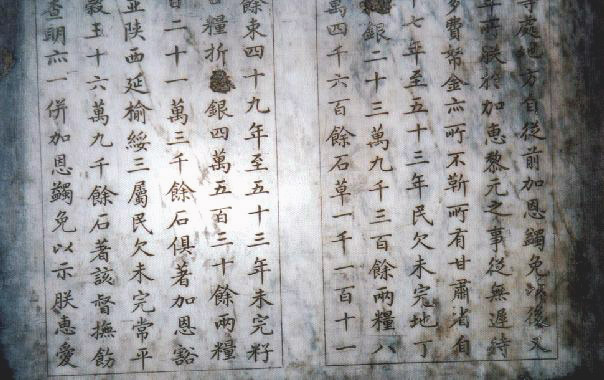 等處地方自從前加恩蠲免以後又
年所朕於加惠黎元之事從無遲待
多費帑金亦所不靳所有甘肅省自
十七年至五十三年民欠未完地丁
銀二十三萬九千三百餘兩糧八
萬四千六百餘石草一千一百十一
餘束四十九年至五十三年未完籽
糧折銀四萬五百三十餘兩糧
百二十一萬三千餘石俱著加恩豁
並陝西延榆綏三屬民欠未完常平
穀五十六萬九千餘石著該督撫飭
查明亦一併加恩蠲免以示朕惠愛